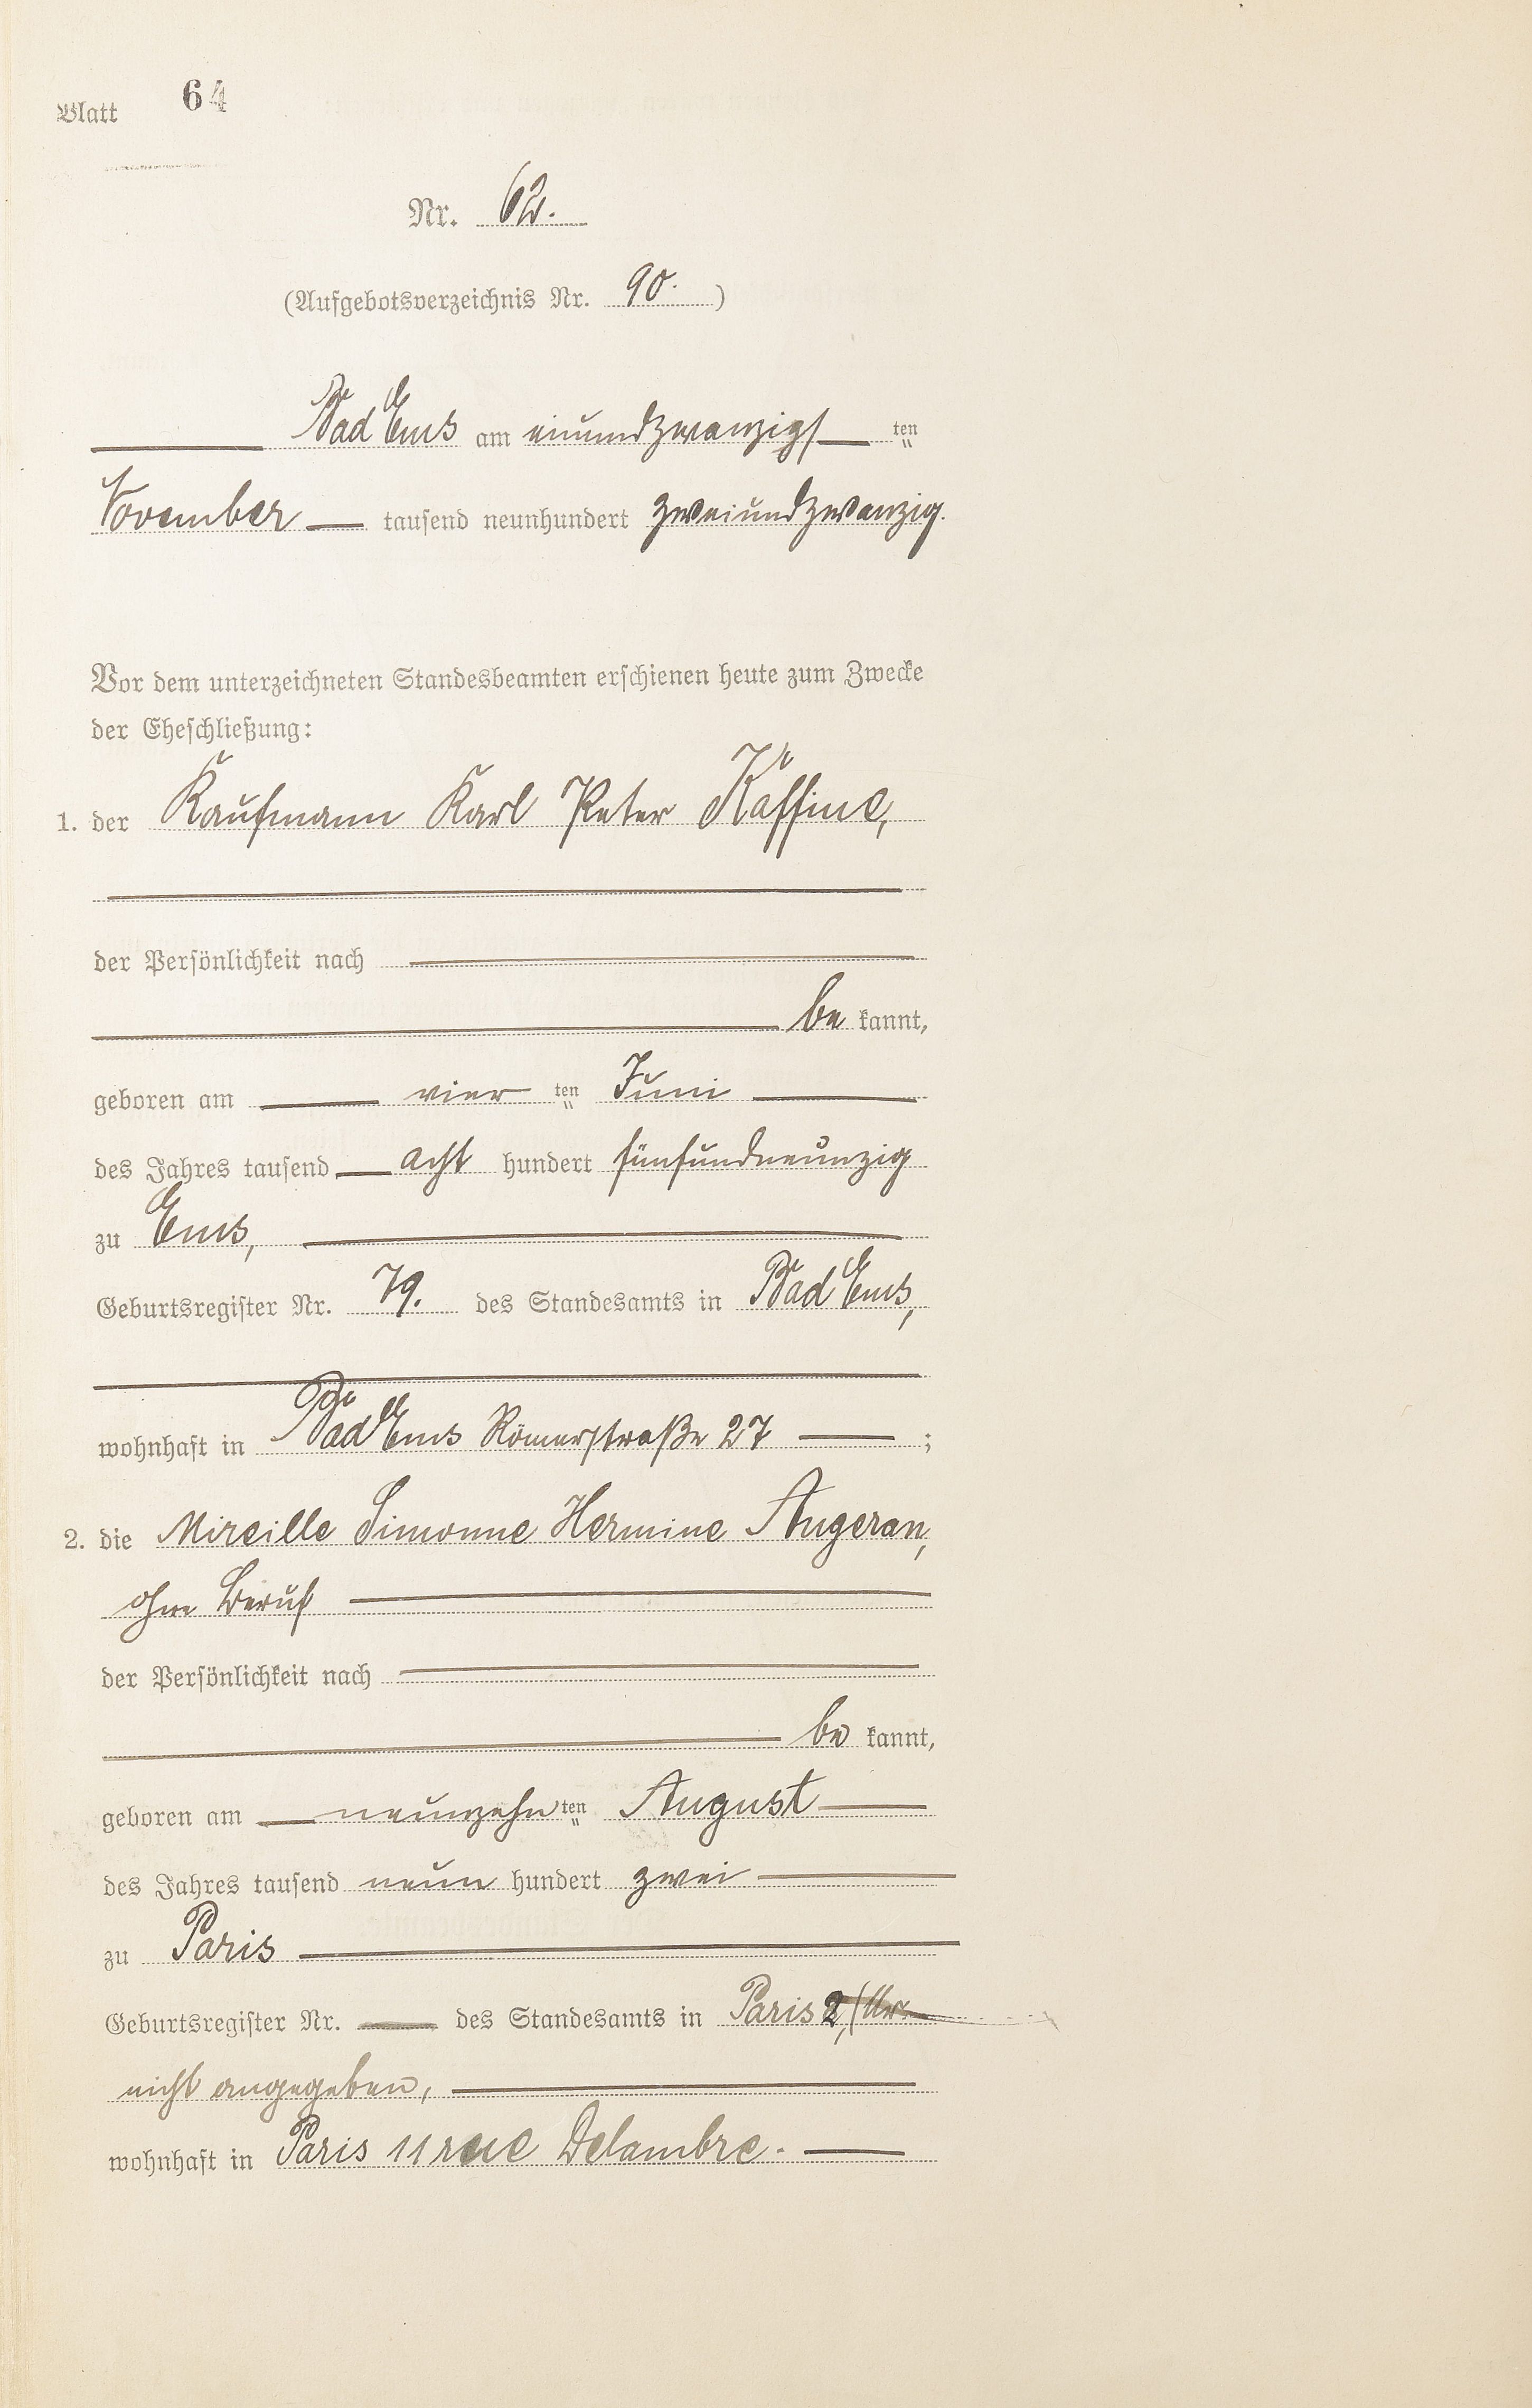 Blatt 64
Nr. 62.
(Aufgebotsverzeichnis Nr. 90.)
Bad Ems am einundzwanzigsten
November tausend neunhundert zweiundzwanzig.
Vor dem unterzeichneten Standesbeamten erschienen heute zum Zwecke
der Eheschließung:
1. der Kaufmann Karl Peter
der Persönlichkeit nach
be kannt,
geboren am vier ten Juni
des Jahres tausend acht hundert fünfundneunzig
zu Ems,
Geburtsregister Nr. 79. des Standesamts in Bad Ems,
wohnhaft in Bad Ems Römerstraße 27 ;
2. die Mireille Simonne Hermine Angeran,
ohne Beruf
der Persönlichkeit nach
be kannt,
geboren am neunzehn ten August
des Jahres tausend neun hundert zwei
zu Paris
Geburtsregister Nr. des Standesamts in Paris 2, (Nr.
nicht angegeben,
wohnhaft in Paris 11 rue Delambre.